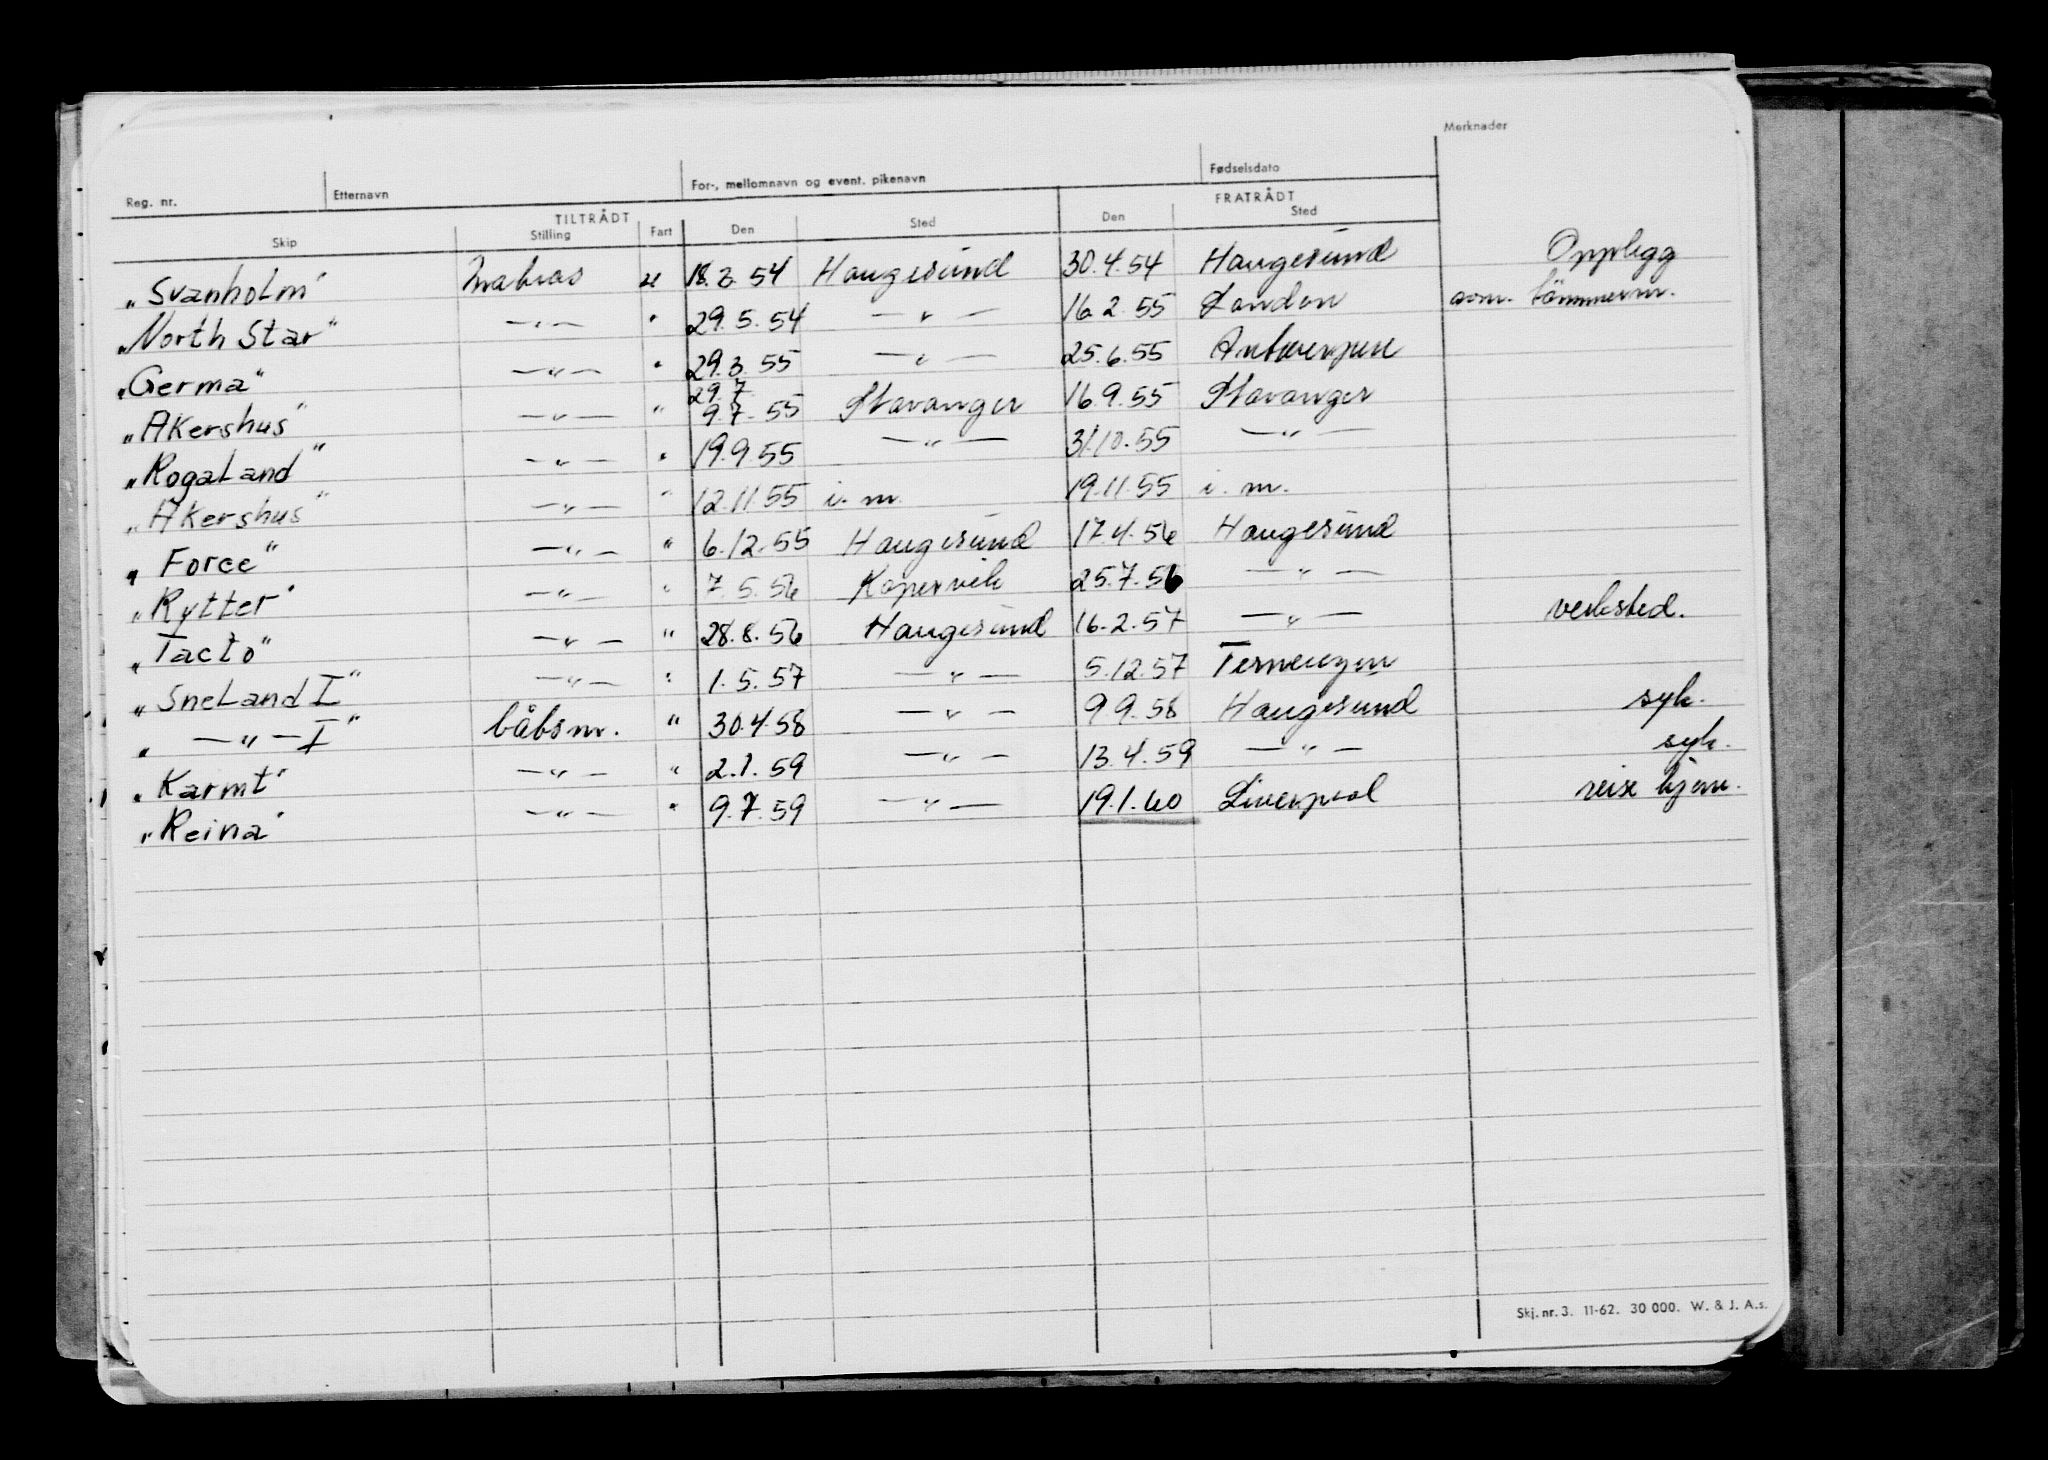 Merknader
Reg. nr. Etternavn For-, mellomnavn og event. pikenavn Fødselsdato
TILTRÅDT FRATRÅDT
Skip Stilling Fart Den Sted Den Sted
"Svanholm" Matros u 18.3.54 Haugesund 30.4.54 Haugesund Opplegg
"North Star" —"— " 29.5.54 —"— 16.2.55 London som. tömmerm.
"Germa" —"— " 29.3.55 —"— 25.6.55 Antwerpen
29.7
"Akershus" —"— " 9.7.55 Stavanger 16.9.55 Stavanger
"Rogaland" —"— " 19.9.55 —"— 31.10.55 —"—
"Akershus" —"— " 12.11.55 i. m. 19.11.55 i. m.
"Force" —"— " 6.12.55 Haugesund 17.4.56 Haugesund
"Rytter" —"— " 7.5.56 Kopervik 25.7.56 —"—
"Tacto" —"— " 28.8.56 Haugesund 16.2.57 —"— verksted.
"Sneland I" —"— " 1.5.57 —"— 5.12.57 Terneuzen
" —"— I" båtsm. " 30.4.58 —"— 9.9.58 Haugesund syk.
"Karmt" —"— " 2.1.59 —"— 13.4.59 —"— syk.
"Reina" —"— " 9.7.59 —"— 19.1.60 Liverpool reise hjem.
Skj. nr. 3. 11-62. 30 000. W. & J. A.s.